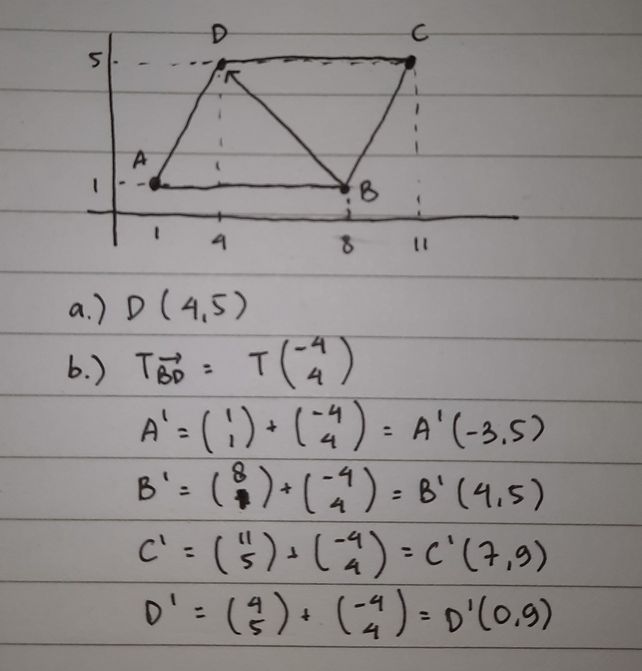 D C
5
A
1 B
1 4 8 11
a.) D (4,5)
b.) T_BD→ = T (-4 4)
A' = (1 1) + (-4 4) = A' (-3,5)
B' = (8 1) + (-4 4) = B' (4,5)
C' = (11 5) + (-4 4) = C' (7,9)
D' = (4 5) + (-4 4) = D' (0,9)